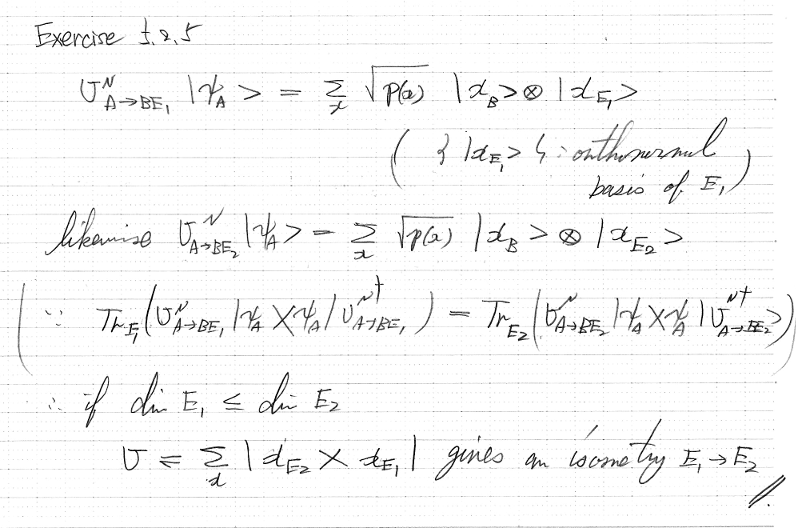 Exercise 5.2.5
U^N_{A→BE_1} |ψ_A> = Σ_x √p(x) |x_B> ⊗ |x_{E_1}>
( { |x_{E_1}> } : orthonormal
basis of E_1 )
likewise U^N_{A→BE_2} |ψ_A> = Σ_x √p(x) |x_B> ⊗ |x_{E_2}>
( ∵ Tr_{E_1} ( U^N_{A→BE_1} |ψ_A X ψ_A| U^{N†}_{A→BE_1} ) = Tr_{E_2} ( U^N_{A→BE_2} |ψ_A X ψ_A| U^{N†}_{A→BE_2} ) )
∴ if dim E_1 ≤ dim E_2
U = Σ_x |x_{E_2} X x_{E_1}| gives an isometry E_1 → E_2